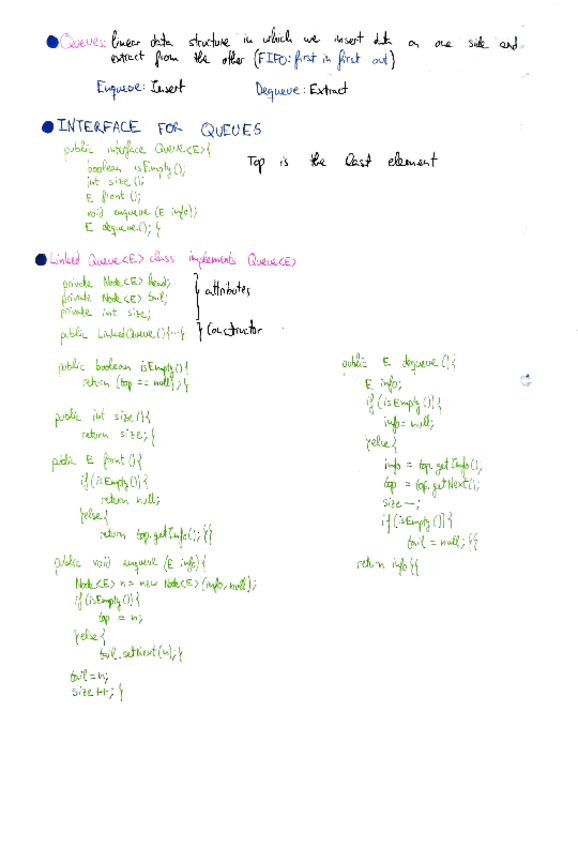 Queues: linear data structure in which we insert data on one side and
extract from the other (FIFO: first in first out)
Enqueue: Insert Dequeue: Extract
INTERFACE FOR QUEUES
public interface Queue<E>{
boolean isEmpty();
int size();
E front();
void enqueue (E info);
E dequeue(); }
Top is the last element
Linked Queue<E> class implements Queue<E>
private Node<E> head;
private Node<E> tail;
private int size;
} attributes
public LinkedQueue(){...} } Constructor
public boolean isEmpty(){
return (top == null);}
public int size(){
return size;}
public E front(){
if(isEmpty()){
return null;
}else{
return top.getInfo();}}
public void enqueue (E info){
Node<E> n = new Node<E>(info, null);
if(isEmpty()){
top = n;
}else{
tail.setNext(n);}
tail = n;
size++; }
public E dequeue(){
E info;
if(isEmpty()){
info = null;
}else{
info = top.getInfo();
top = top.getNext();
size--;
if(isEmpty()){
tail = null;}}
return info}}